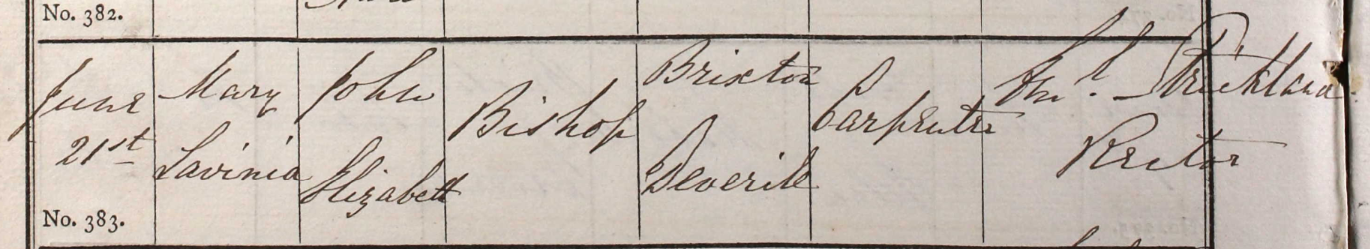 No. 382.
June
21st
Mary
Lavinia
John
Elizabeth
Bishop
Brixton
Deverill
Carpenter
Strickland
Rector
No. 383.